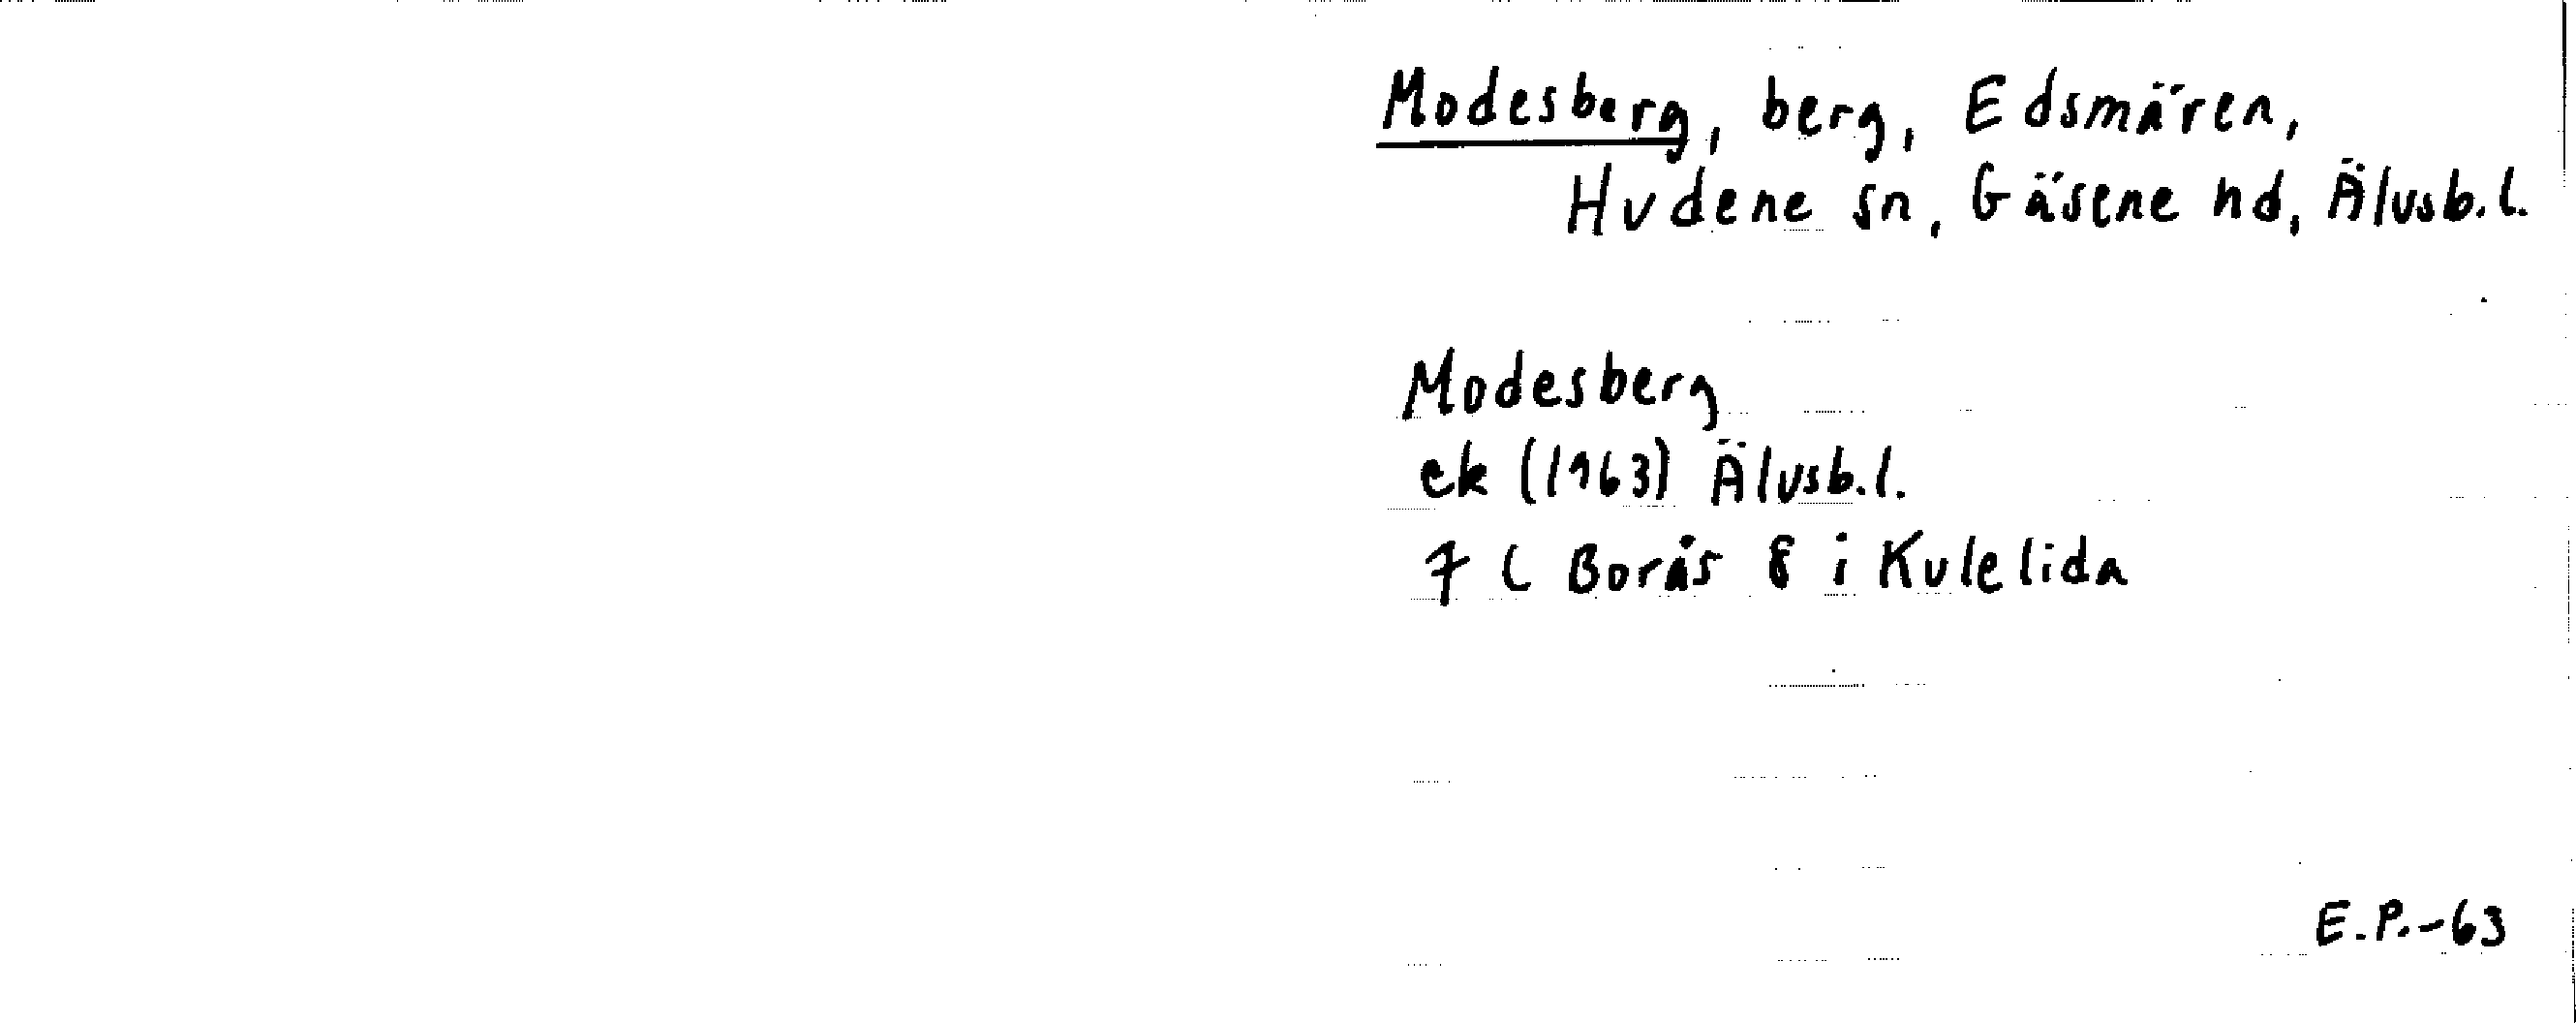 Modesberg, berg, Edsmären,
Hudene sn, Gäsene hd, Älvsb.l.
Modesberg
ek (1963) Älvsb.l.
7 C Borås 8 i Kulelida
E.P.-63